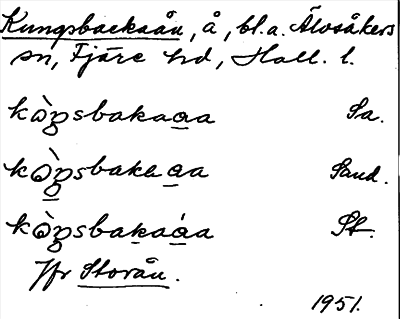 Kungsbackaån, å, bl.a. Älvsåkers
sn, Fjäre hd, Hall. l.
kò̯ŋsbakaa̱a Sa.
kò̯ŋsbakaa̱a Sand.
kò̯ŋsbaḵaá̱a St.
Jfr Storån.
1951.